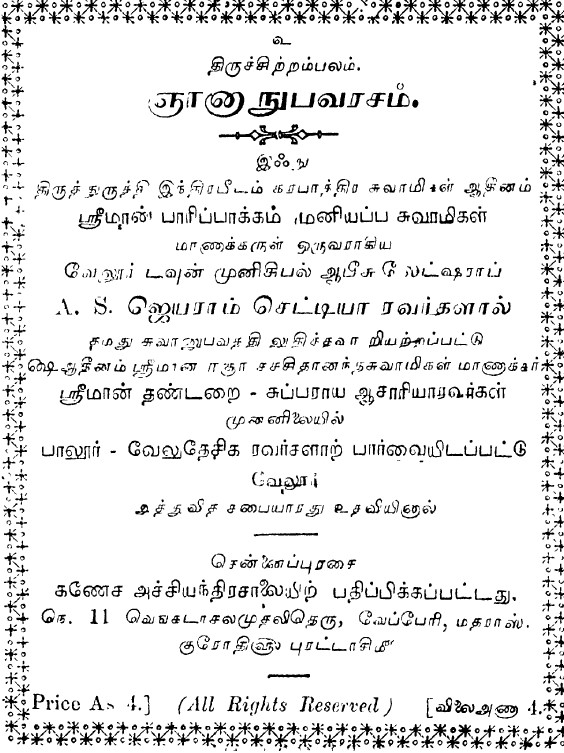 உ
திருச்சிற்றம்பலம்.
ஞானாநுபவரசம்.
இஃது
திருத்துருத்தி இந்திரபீடம் கரபாத்திர சுவாமிகள் ஆதீனம்
ஸ்ரீமான் பாரிப்பாக்கம் முனியப்ப சுவாமிகள்
மாணக்கருள் ஒருவராகிய
வேலூர் டவுன் முனிசிபல் ஆபீசு லேட்ஷராப்
A. S. ஜெயராம் செட்டியா ரவர்களால்
தமது சுவாநுபவத்தி லுதிச்சவா றியற்றப்பட்டு
ஷெ ஆதீனம் ஸ்ரீமான் சச்சிதானந்தசுவாமிகள் மாணாக்கர்
ஸ்ரீமான் தண்டறை - சுப்பராய ஆசாரியாரவர்கள்
முன்னிலையில்
பாலூர் - வேலுதேசிக ரவர்களாற் பார்வையிடப்பட்டு
வேலூர்
அத்துவித சபையாரது உதவியினால்
சென்னைப்புரசை
கணேச அச்சியந்திரசாலையிற் பதிப்பிக்கப்பட்டது.
நெ. 11 வெங்கடாசலமுதலிதெரு, வேப்பேரி, மதராஸ்.
குரோதி௵ புரட்டாசிமீ
Price As 4.] (All Rights Reserved) [விலைஅணா 4.